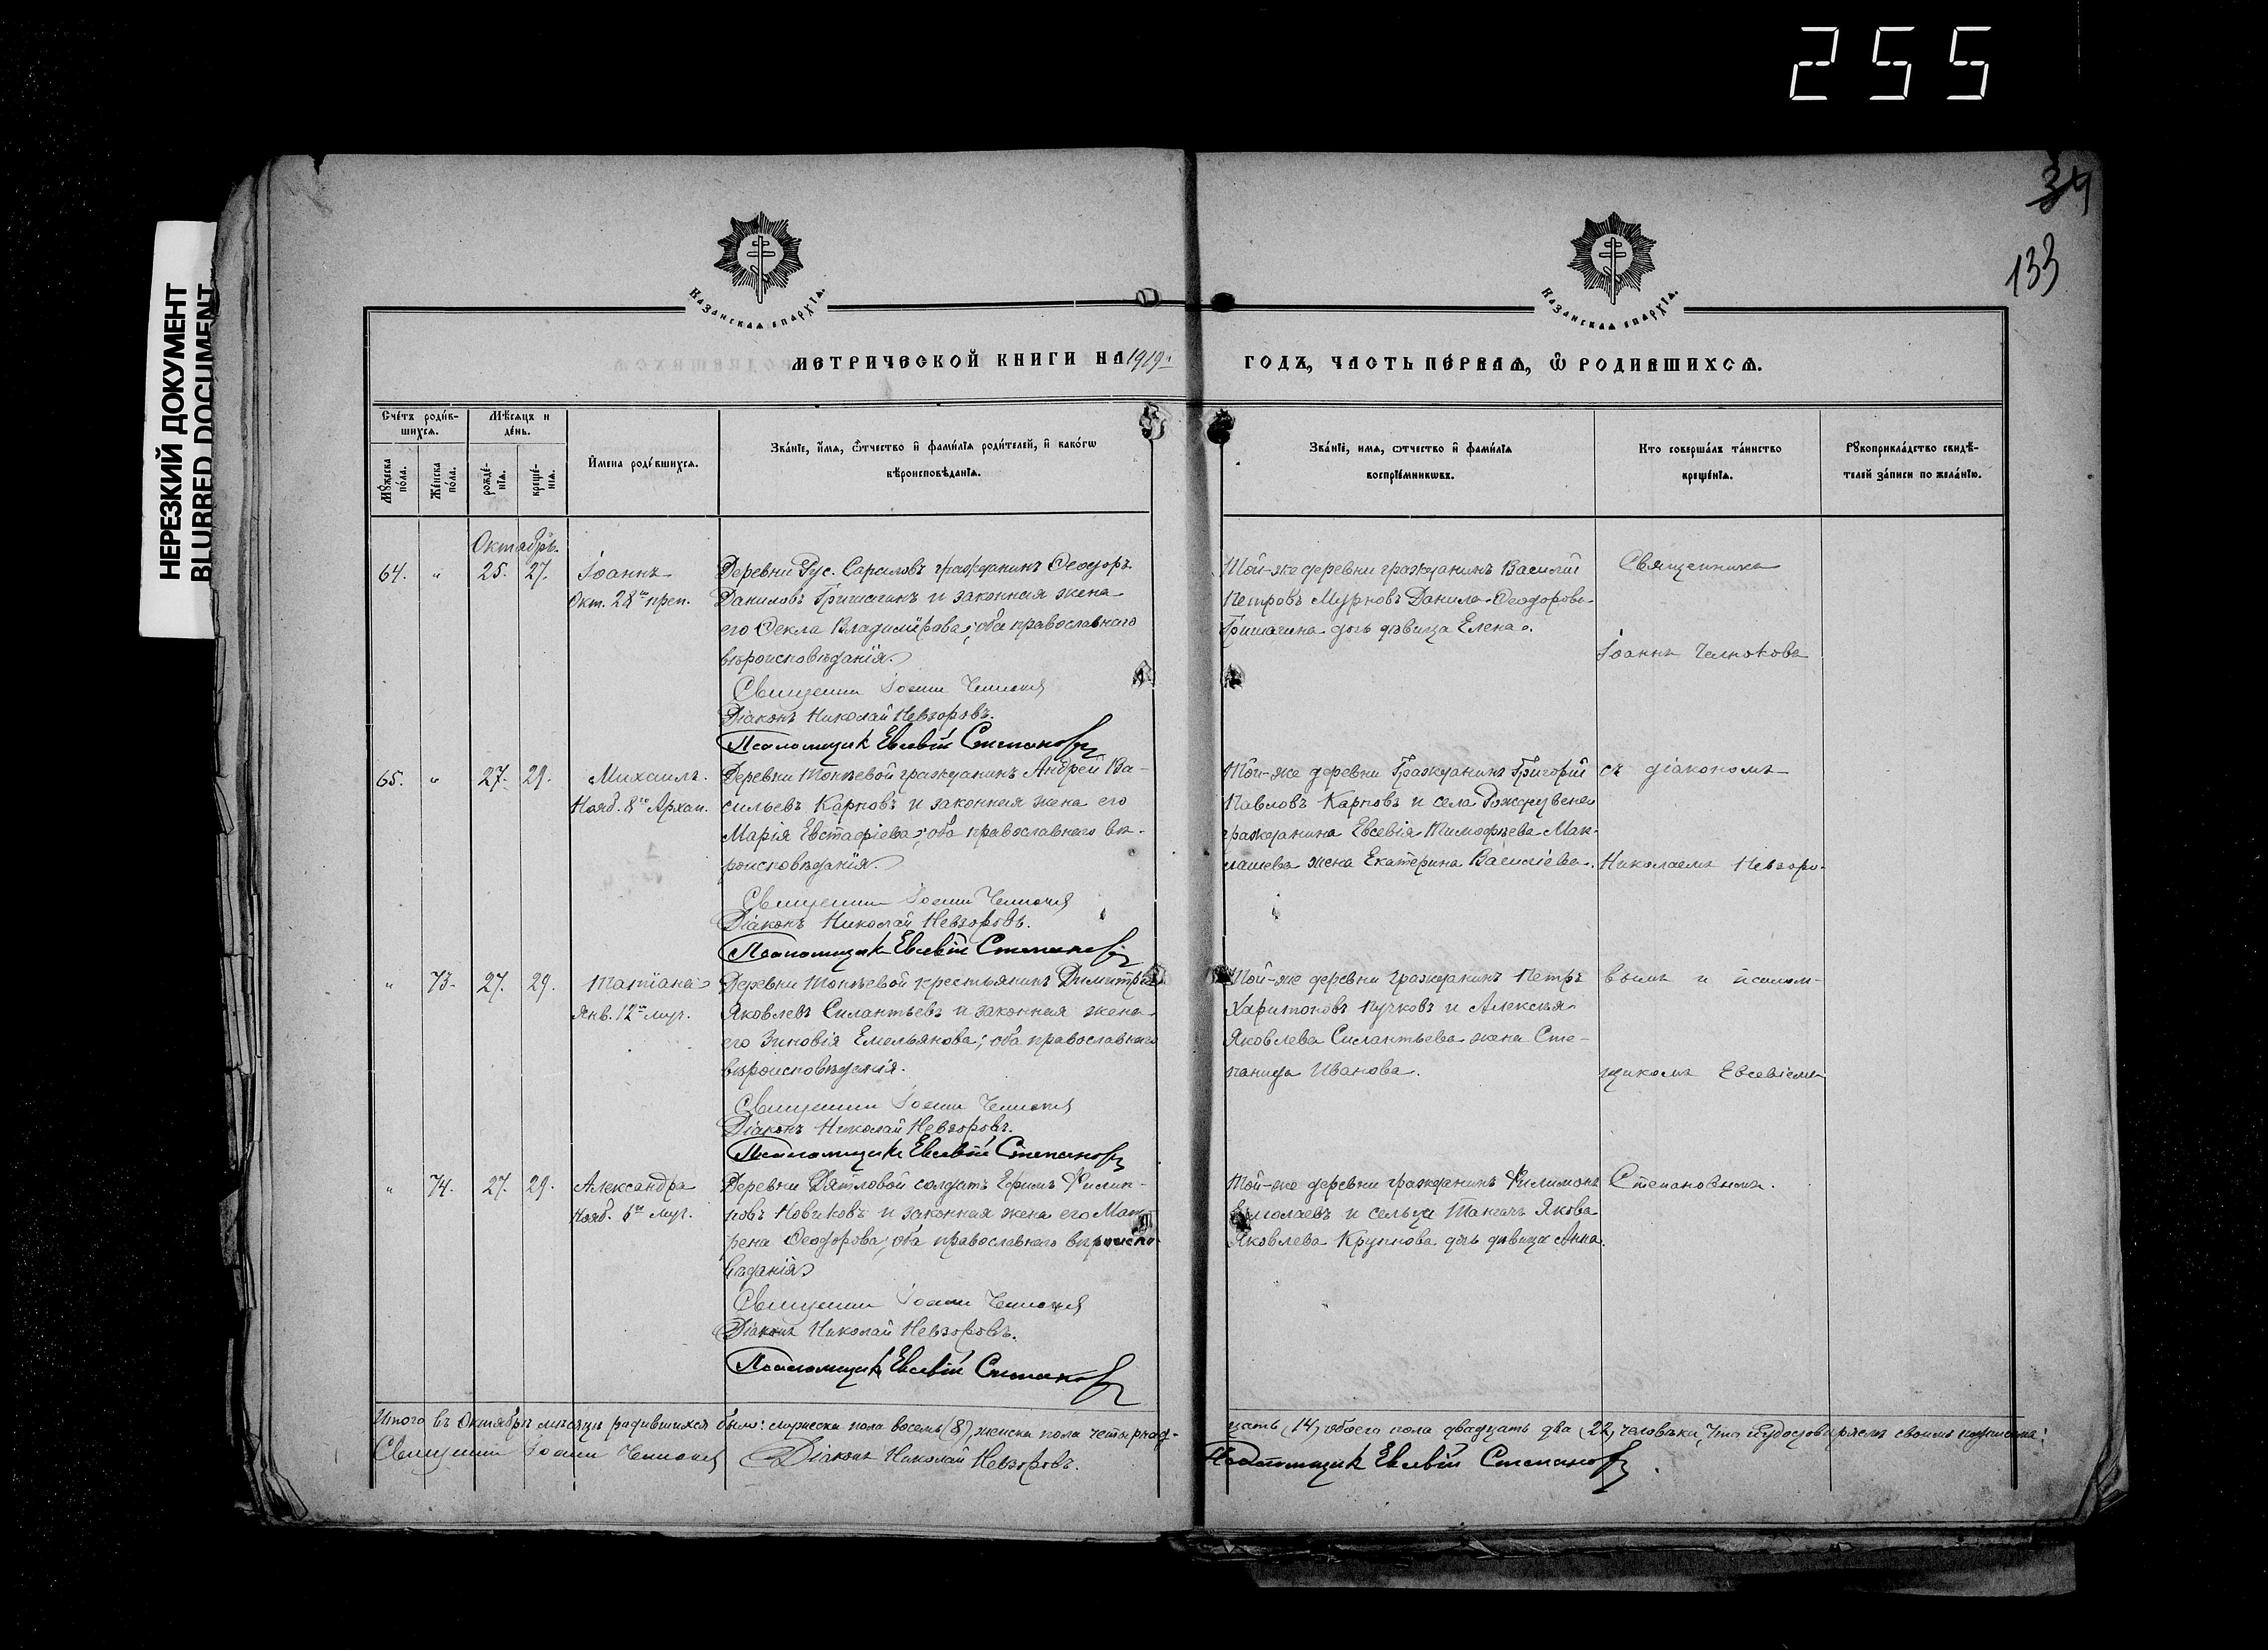 255
НЕРЕЗКИЙ ДОКУМЕНТ
BLURRED DOCUMENT
34
133
КАЗАНСКАЯ ЕПАРХІЯ.
КАЗАНСКАЯ ЕПАРХІЯ.
МЕТРИЧЕСКОЙ КНИГИ НА 1919 ГОДЪ, ЧАСТЬ ПЕРВАЯ, Ѿ РОДИВШИХСЯ.
Счетъ родив-
шихся.
Мѣсяцъ и
день.
Мꙋжеска
пола.
Женска
пола.
рожде-
нія.
креще-
нія.
Имена родившихся.
Званіе, имя, ѿчество и фамилія родителей, и какогѡ
вѣроисповѣданія.
Званіе, имя, ѿчество и фамилія
воспріемникѡвъ.
Кто совершалъ таинство
крещенія.
Рꙋкоприкладство свидѣ-
телей записи по желанію.
Октябрь.
64. " 25. 27. Іоаннъ
Окт. 28го преп.
Деревни Рус. Сарсловъ гражданинъ Ѳеодоръ
Даниловъ Гришагинъ и законная жена
его Ѳекла Владимірова; оба православнаго
вѣроисповѣданія.
Священникъ Іоаннъ Челноковъ
Діаконъ Николай Невзоровъ.
Псаломщикъ Евсевій Степановъ
Той-же деревни гражданинъ Василій
Петровъ Мурновъ Данила Ѳеодорова
Гришагина дочь дѣвица Елена.
Священникъ
Іоаннъ Челноковъ
65. " 27. 29. Михаилъ.
Нояб. 8го Архан.
Деревни Тонѣевой гражданинъ Андрей Ва-
сильевъ Карповъ и законная жена его
Марія Евстафіева; оба православнаго вѣ-
роисповѣданія.
Священникъ Іоаннъ Челноковъ
Діаконъ Николай Невзоровъ.
Псаломщикъ Евсевій Степановъ
Той-же деревни Гражданинъ Григорій
Павловъ Карповъ и села Рождествено
гражданина Евсевія Тимофѣева Мак-
лашева жена Екатерина Васильева.
съ діакономъ
Николаемъ Невзоро-
" 73. 27. 29. Татіана
Янв. 12го муч.
Деревни Тонѣевой крестьянинъ Димитрій
Яковлевъ Силантьевъ и законная жена
его Зиновія Емельянова; оба православнаго
вѣроисповѣданія.
Священникъ Іоаннъ Челноковъ
Діаконъ Николай Невзоровъ.
Псаломщикъ Евсевій Степановъ
Той-же деревни Гражданинъ Петръ
Харитоновъ Пучковъ и Алексѣя
Яковлева Силантьева жена Сте-
панида Иванова.
вымъ и псалом-
щикомъ Евсевіемъ
" 74. 27. 29. Александра
Нояб. 6го муч.
Деревни Дятловой солдатъ Ефимъ Филип-
повъ Новиковъ и законная жена его Мат-
рена Ѳеодорова; оба православнаго вѣроиспо-
вѣданія
Священникъ Іоаннъ Челноковъ
Діаконъ Николай Невзоровъ.
Псаломщикъ Евсевій Степановъ
Той-же деревни гражданинъ Филимонъ
Ермолаевъ и сельца Танаевъ Якова
Яковлева Крупнова дочь дѣвица Анна.
Степановымъ.
Итого въ Октябрѣ мѣсяцѣ родившихся было: мужеска пола восемь (8), женска пола четырнад-
цать (14) обоего пола двадцать два (22) человѣка, что и удостовѣряемъ своимъ подписомъ:
Священникъ Іоаннъ Челноковъ Діаконъ Николай Невзоровъ. Псаломщикъ Евсевій Степановъ.